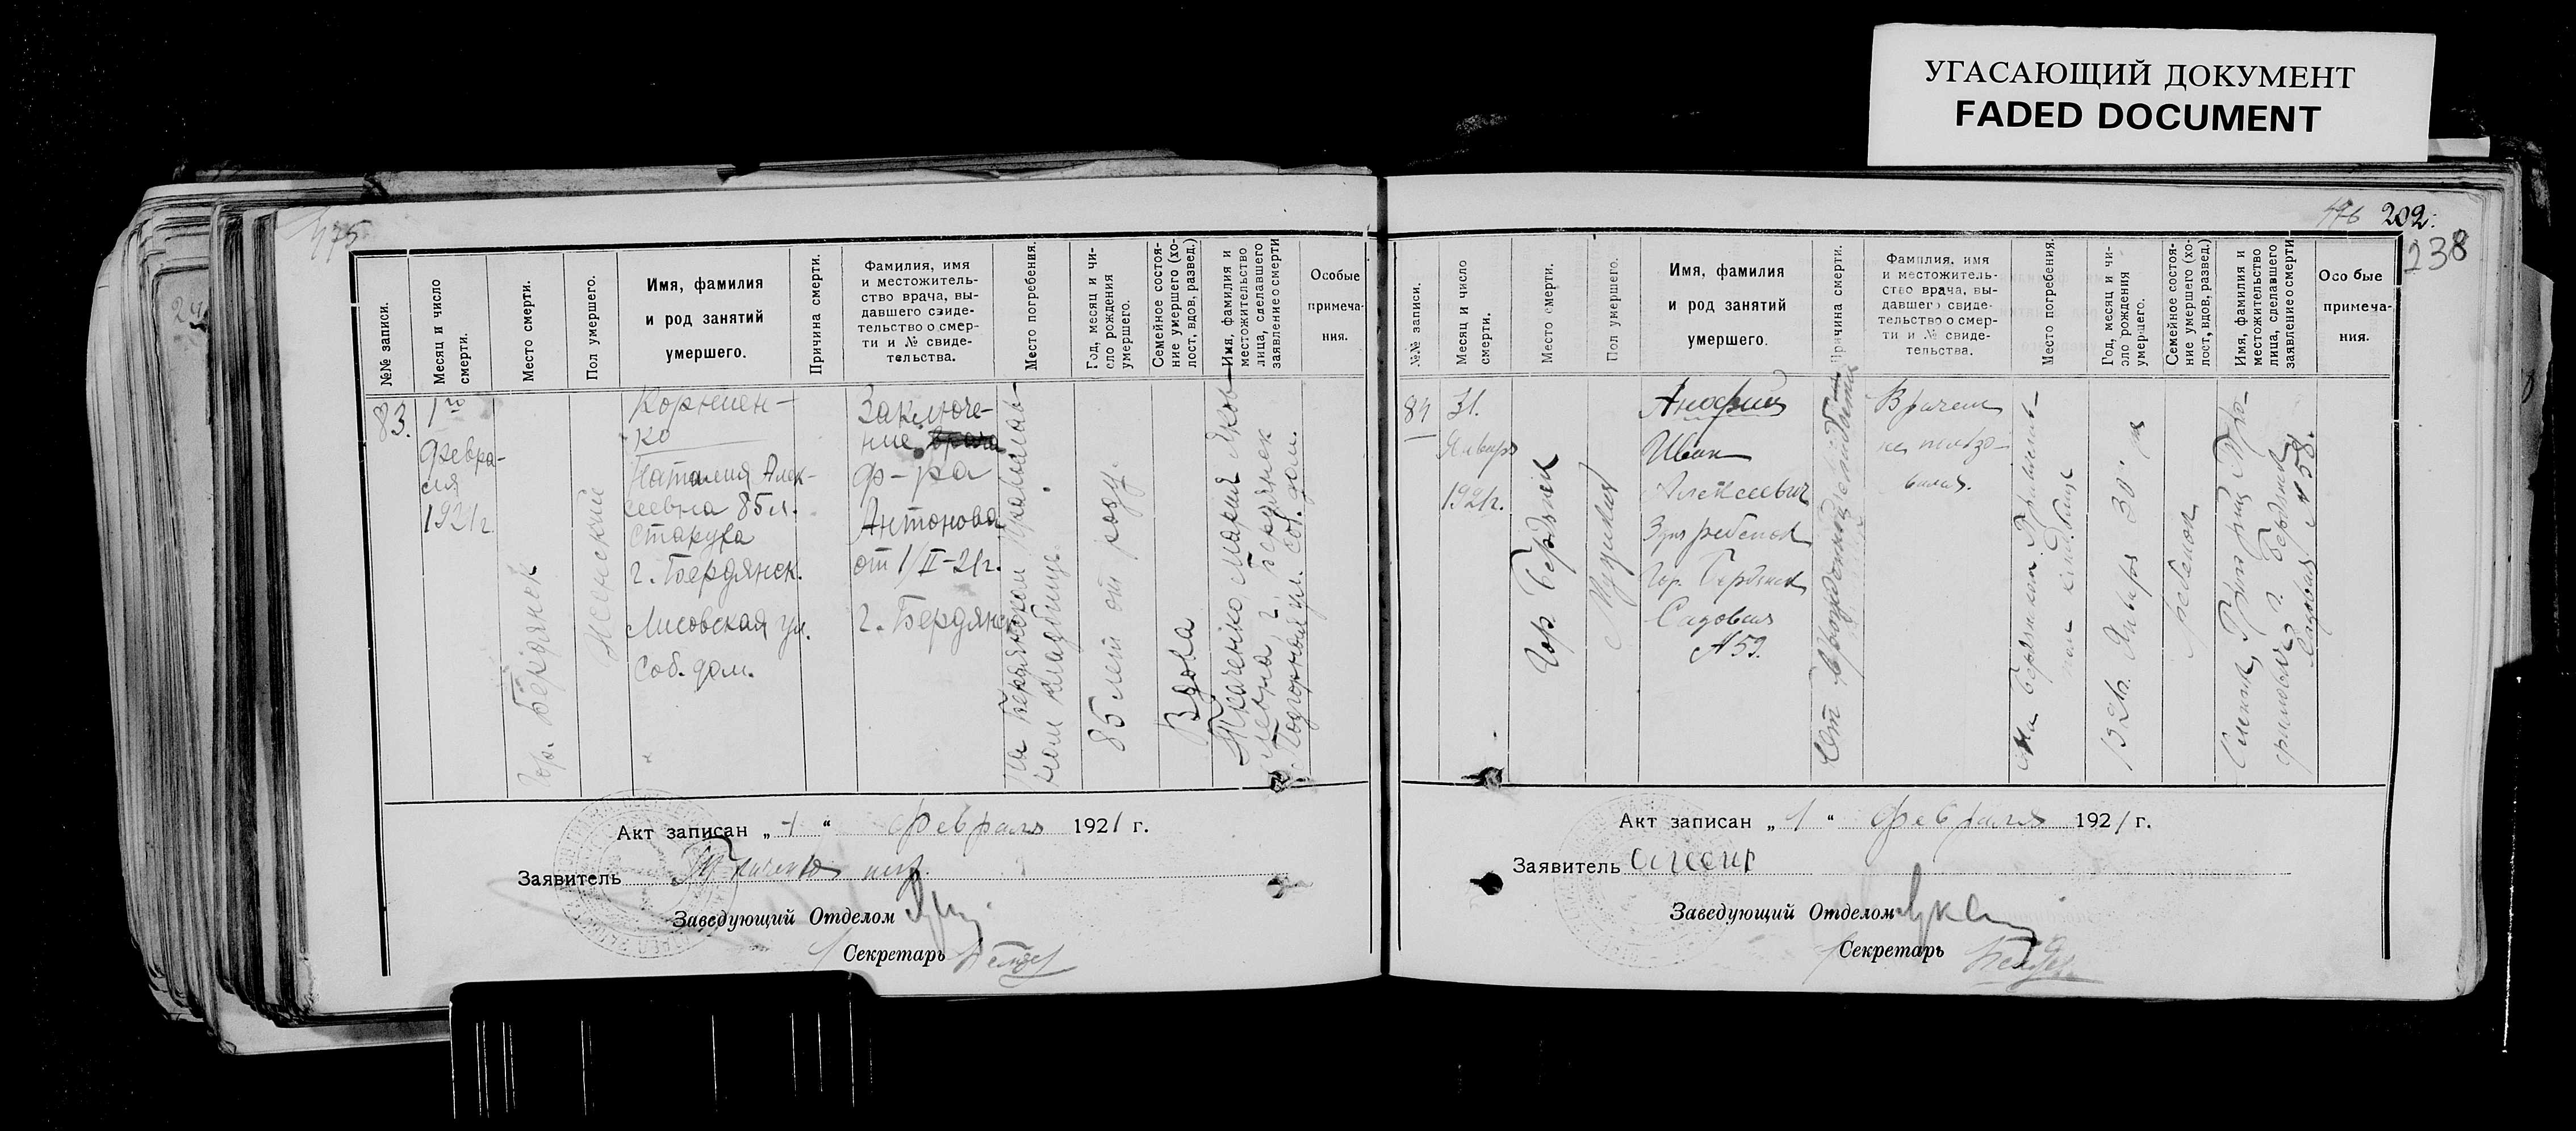 УГАСАЮЩИЙ ДОКУМЕНТ
FADED DOCUMENT
475
№№ записи.
Месяц и число
смерти.
Место смерти.
Пол умершего.
Имя, фамилия
и род занятий
умершего.
Причина смерти.
Фамилия, имя
и местожитель-
ство врача, вы-
давшего свиде-
тельство о смер-
ти и № свиде-
тельства.
Место погребения.
Год, месяц и чи-
сло рождения
умершего.
Семейное состоя-
ние умершего (хо-
лост, вдов, развед.)
Имя, фамилия и
местожительство
лица, сделавшего
заявление о смерти
Особые
примеча-
ния.
83.
1го
Февра-
ля
1921г.
Гор. Бердянск
Женский
Корниен-
ко
Наталия Алек-
сеевна 85 л.
Старуха
г. Бердянск.
Лисовская ул.
соб. дом.
Заключе-
ние врача
ф-ра
Антонова
от 1/II-21г.
г. Бердянск
На Бердянском православ-
ном кладбище.
85 лет от роду.
Вдова
Ткаченко Мария Яков-
левна, г. Бердянск
Подгорный ул. соб. дом.
Акт записан „ 1 “ февраля 1921 г.
Заявитель Ткаченко
Заведующий Отделом
Секретарь
476 202.
238
№№ записи.
Месяц и число
смерти.
Место смерти.
Пол умершего.
Имя, фамилия
и род занятий
умершего.
Причина смерти.
Фамилия, имя
и местожитель-
ство врача, вы-
давшего свиде-
тельство о смер-
ти и № свиде-
тельства.
Место погребения.
Год, месяц и чи-
сло рождения
умершего.
Семейное состоя-
ние умершего (хо-
лост, вдов, развед.)
Имя, фамилия и
местожительство
лица, сделавшего
заявление о смерти
Особые
примеча-
ния.
84
31.
Января
1921г.
Гор. Бердянск
Мужский
Иван
Алексеевич
3 дня ребенок
Гор. Бердянск
Садовая
№ 59.
От врожденной слабости
Врачем
не пользо-
вался.
На Бердянском Православ-
ном кладбище
1921г. Января 30 дня
ребенок
г. Бердянск
Садовая № 58.
Акт записан „ 1 “ февраля 1921 г.
Заявитель
Заведующий Отделом
Секретарь